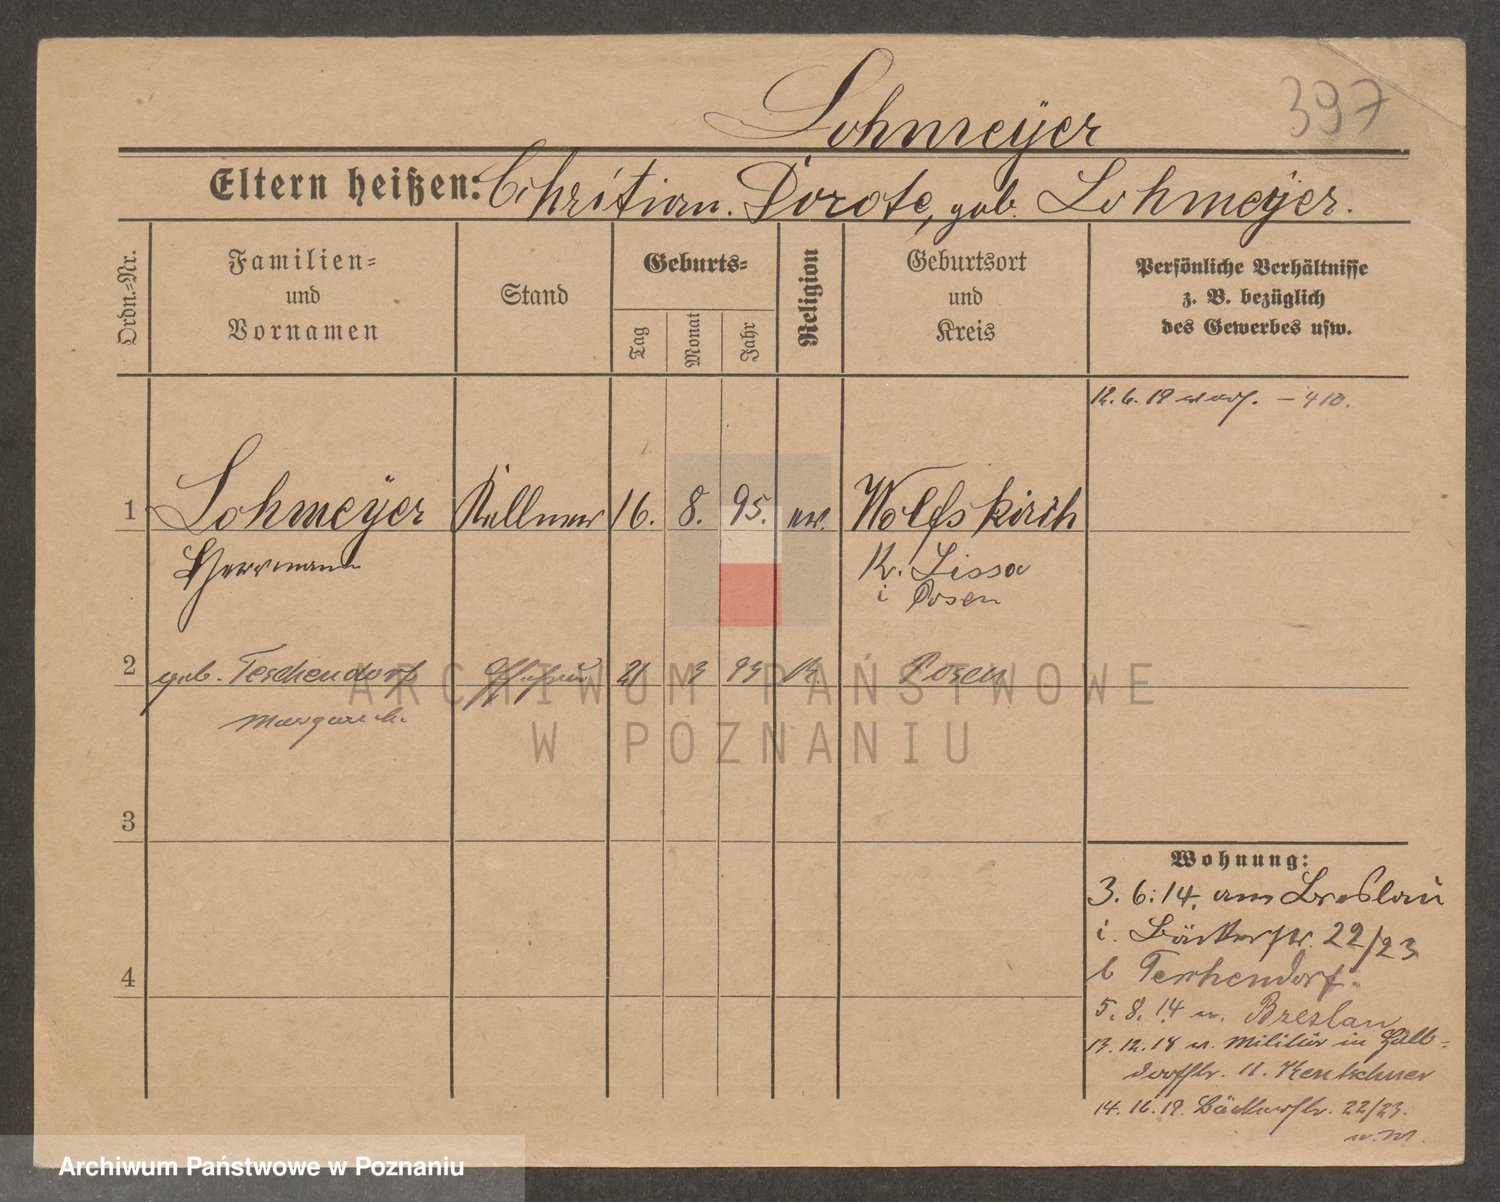 Lohmeÿer
397
Eltern heißen: Chritian. Dorote, geb. Lohmeÿer.
Ordn.=Nr.
Familien=
und
Vornamen
Stand
Geburts=
Tag
Monat
Jahr
Religion
Geburtsort
und
Kreis
Persönliche Verhältnisse
z. B. bezüglich
des Gewerbes usw.
12. 6. 19 – 410.
1 Lohmeÿer Kellner 16. 8. 95. ev. Wolfskirch
Herrmann
K. Lissa
i Posen
2 geb. Teschendorf Ehefrau 21 3 93 K. Posen
Margareth.
3
4
Wohnung:
3. 6. 14. aus Breslau
i. Bäckerstr. 22/23
b Teschendorf.
5. 8. 14 n. Breslau
13. 12. 18 v. Militär in
11. Kentschner
14. 16. 19. Bäckerstr. 22/23.
ARCHIWUM PAŃSTWOWE
W POZNANIU
Archiwum Państwowe w Poznaniu